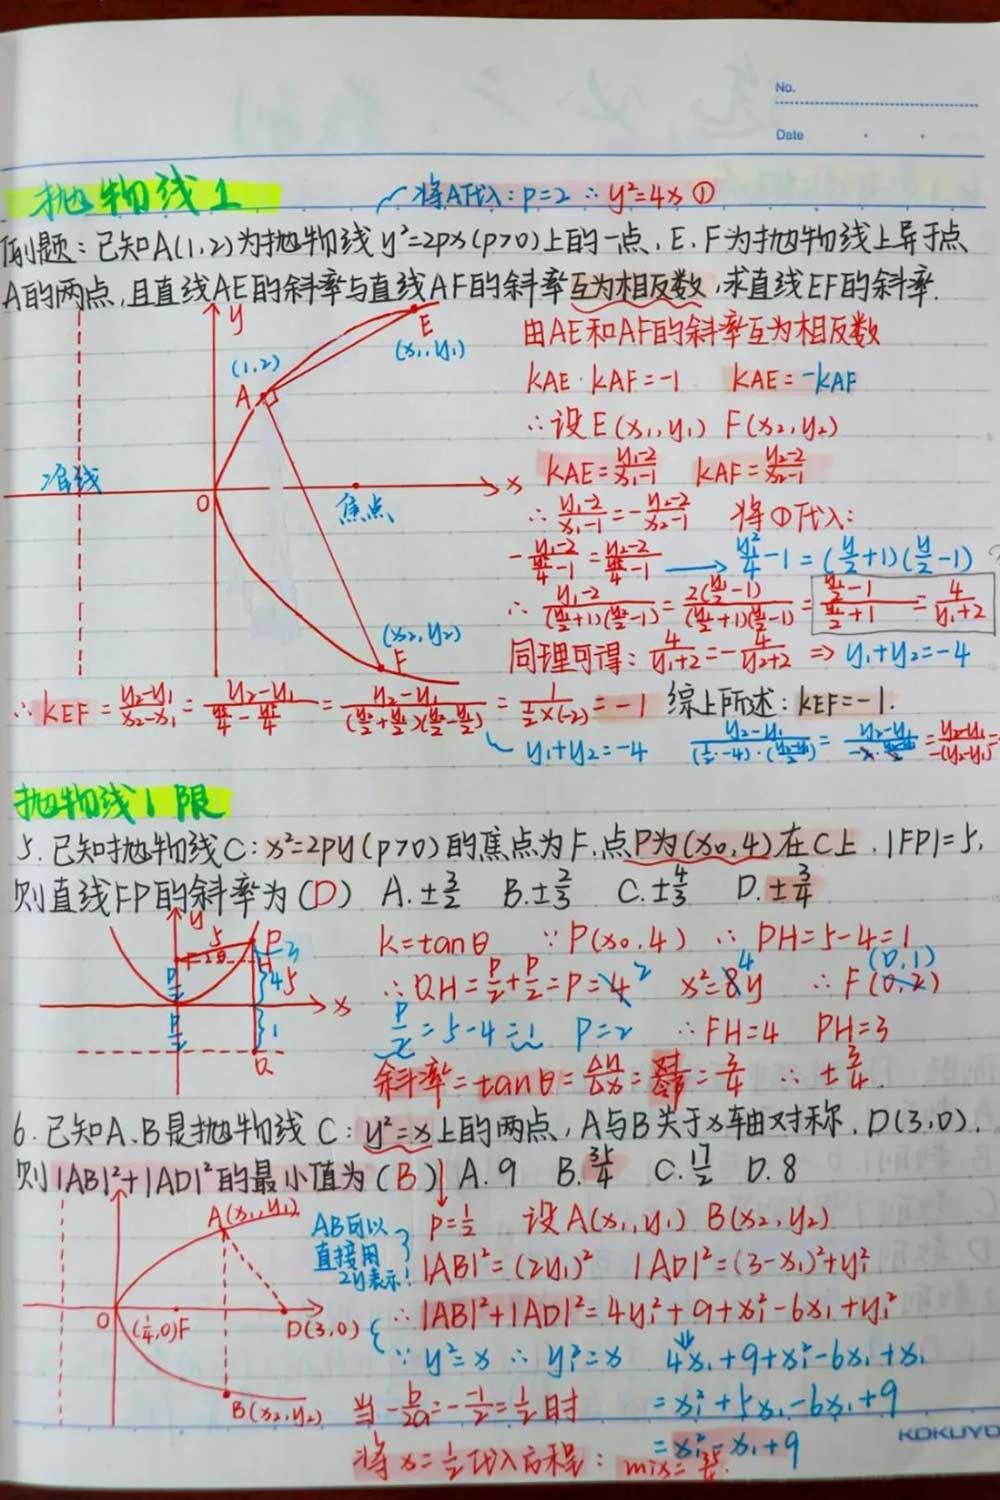 No.
Date
抛物线1
将A代入:p=2 ∴y²=4x ①
例题:已知A(1,2)为抛物线y²=2px(p>0)上的一点,E、F为抛物线上异于点
A的两点,且直线AE的斜率与直线AF的斜率互为相反数,求直线EF的斜率.
y
E
(x₁,y₁)
(1,2)
A
准线
O
x
焦点
(x₂,y₂)
F
由AE和AF的斜率互为相反数
kAE·kAF=-1 kAE=-kAF
∴设E(x₁,y₁) F(x₂,y₂)
kAE=(y₁-2)/(x₁-1) kAF=(y₂-2)/(x₂-1)
∴(y₁-2)/(x₁-1)=-(y₂-2)/(x₂-1) 将①代入:
y₁²/4-1=(y/2+1)(y/2-1)
=4/(y₁+2)
同理可得:4/(y₁+2)=-4/(y₂+2) ⇒ y₁+y₂=-4
∴kEF=(y₂-y₁)/(x₂-x₁)
=1/(½×(-2))=-1 综上所述:kEF=-1.
y₁+y₂=-4
抛物线1限
5.已知抛物线C:x²=2py(p>0)的焦点为F,点P为(x₀,4)在C上,|FP|=5,
则直线FP的斜率为(D) A.±3/2 B.±2/3 C.±4/3 D.±3/4
y
5
P
F
θ
H
3
4
5
x
p/2
p/2
1
Q
k=tanθ ∵P(x₀,4) ∴PH=5-4=1
∴QH=p/2+p/2=p=4 2 x²=8y 4 ∴F(0,2) (0,1)
p/2=5-4=1 p=2 ∴FH=4 PH=3
斜率=tanθ=Δy/Δx=3/4 ∴±3/4.
6.已知A、B是抛物线C:y²=x上的两点,A与B关于x轴对称,D(3,0),
则|AB|²+|AD|²的最小值为(B) A.9 B.35/4 C.17/2 D.8
A(x₁,y₁)
O
(¼,0)F
D(3,0)
B(x₂,y₂)
AB可以
直接用
2y表示!
p=½ 设A(x₁,y₁) B(x₂,y₂)
|AB|²=(2y₁)² |AD|²=(3-x₁)²+y₁²
∴|AB|²+|AD|²=4y₁²+9+x₁²-6x₁+y₁²
∵y²=x ∴y₁²=x 4x₁+9+x₁²-6x₁+x₁
当-b/2a=-(-1)/2=½时 =x₁²+5x₁-6x₁+9
=x₁²-x₁+9
将x=½代入方程: mix=35/4.
KOKUYO